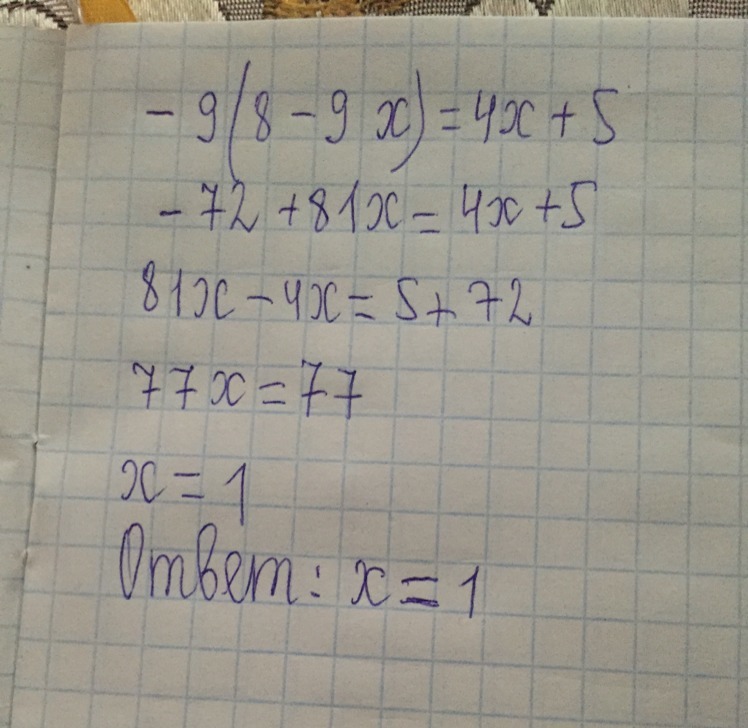 - 9(8 - 9x) = 4x + 5
- 72 + 81x = 4x + 5
81x - 4x = 5 + 72
77x = 77
x = 1
Ответ: x = 1